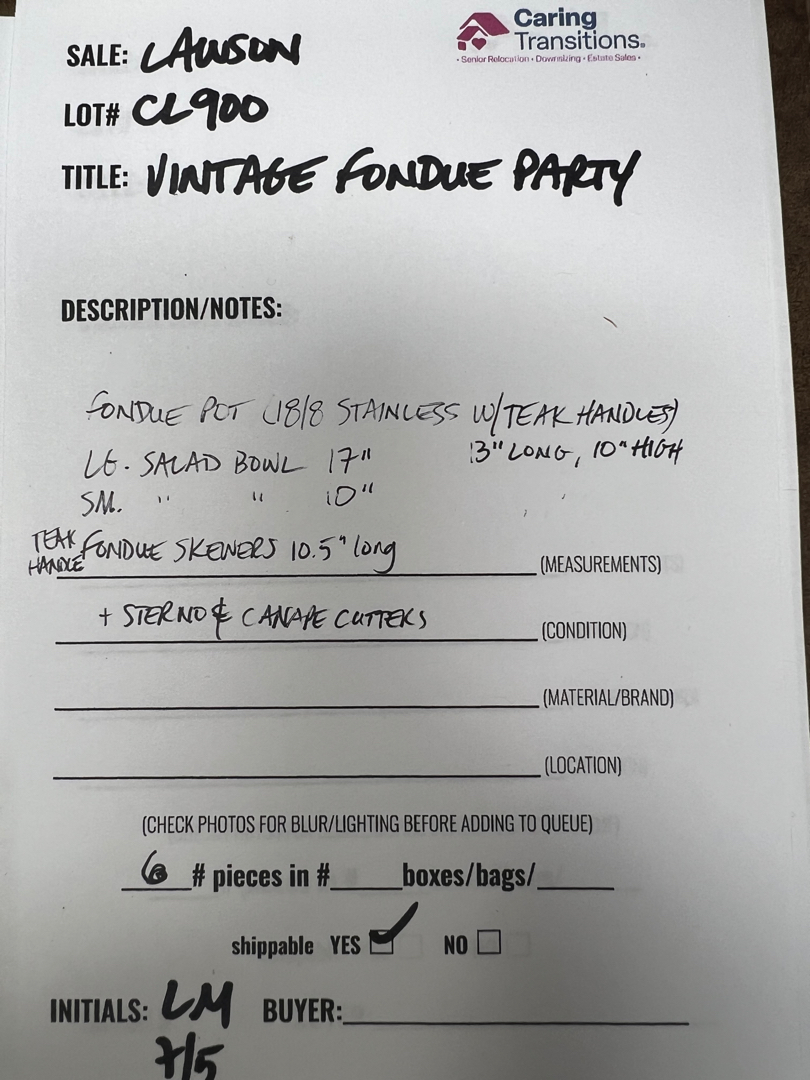 Caring
Transitions.
• Senior Relocation • Downsizing • Estate Sales •
SALE: LAWSON
LOT# CL900
TITLE: VINTAGE FONDUE PARTY
DESCRIPTION/NOTES:
FONDUE POT (18/8 STAINLESS W/TEAK HANDLES)
13" LONG, 10" HIGH
LG. SALAD BOWL 17"
SM. " " 10"
TEAK HANDLE FONDUE SKEWERS 10.5" long (MEASUREMENTS)
+ STERNO & CANAPE CUTTERS (CONDITION)
(MATERIAL/BRAND)
(LOCATION)
(CHECK PHOTOS FOR BLUR/LIGHTING BEFORE ADDING TO QUEUE)
6 # pieces in #_____boxes/bags/_____
shippable YES ☑ NO ☐
INITIALS: LM BUYER:
7/5